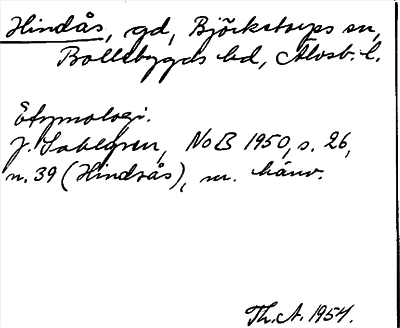 Hindås, gd, Björketorps sn,
Bollebygds hd, Älvsb. l.
Etymologi.
J. Sahlgren, NoB 1950, s. 26,
n. 39 (Hindsås), m. hänv.
Th. A. 1954.